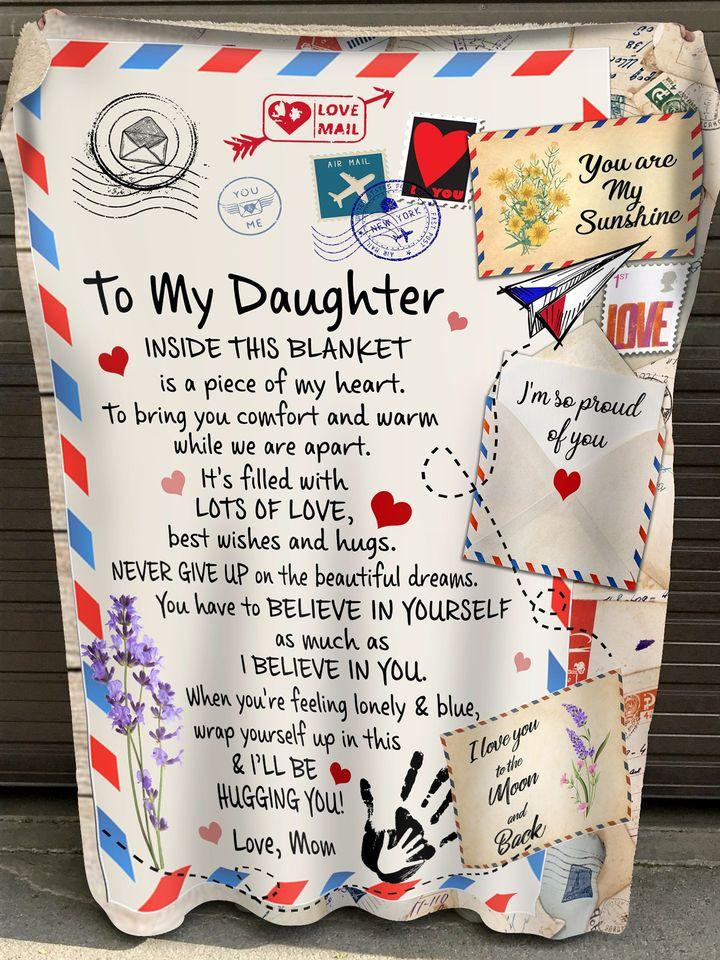 LOVE
MAIL
AIR MAIL
YOU
YOU
ME
NEW YORK
FAST POST
AIR MAIL
You are
My
Sunshine
1ST
LOVE
To My Daughter
INSIDE THIS BLANKET
is a piece of my heart.
To bring you comfort and warm
while we are apart.
It's filled with
LOTS OF LOVE,
best wishes and hugs.
NEVER GIVE UP on the beautiful dreams.
You have to BELIEVE IN YOURSELF
as much as
I BELIEVE IN YOU.
When you're feeling lonely & blue,
wrap yourself up in this
& I'LL BE
HUGGING YOU!
Love, Mom
I'm so proud
of you
I love you
to the
Moon
and
Back